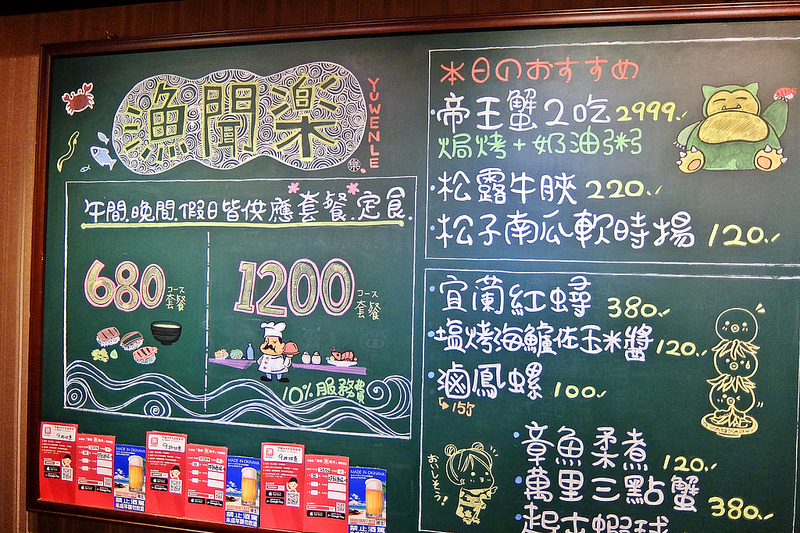 漁聞楽
YUWENLE
午間.晚間.假日皆供應套餐.定食.
680 コース
套餐
1200 コース
套餐
10%服務費
本日のおすすめ
·帝王蟹2吃 2999.
焗烤+奶油粥
·松露牛脥 220.
·松子南瓜軟時揚 120.
·宜蘭紅蟳 380.
·塩烤海鱸佐玉米醬 120.
·滷鳳螺 100.
·章魚柔煮 120.
·萬里三點蟹 380.
おいしそう!
MADE IN OKINAWA
禁止酒駕
未成年請勿飲酒
MADE IN OKINAWA
禁止酒駕
MADE IN OKINAWA
禁止酒駕